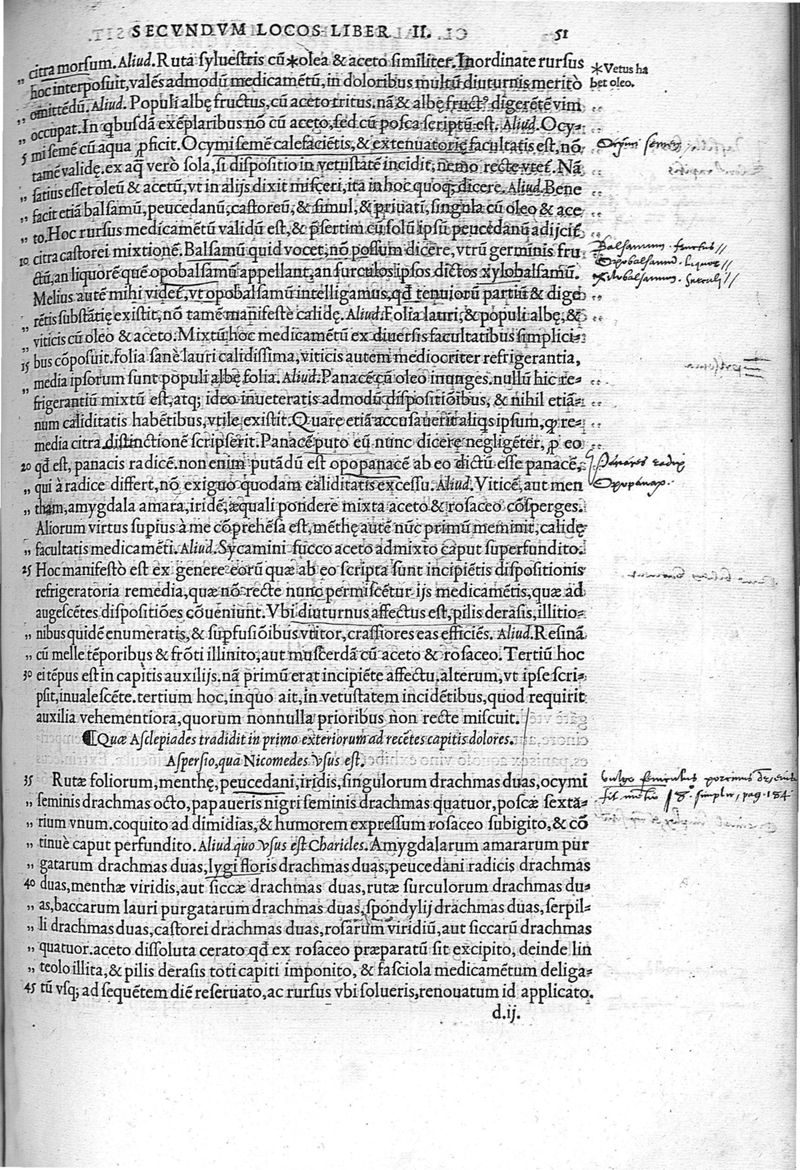 SECVNDVM LOCOS LIBER II. 51
citra morsum. Aliud. Ruta syluestris cũ *olea & aceto similiter. Inordinate rursus
*Vetus ha
bet oleo.
„ hoc interposuit, valẽs admodũ medicamẽtũ, in doloribus multũ diuturnis merito
„ omittẽdũ. Aliud. Populi albę fructus, cũ aceto tritus. nã & albę fruct⁹ digerẽtẽ vim
„ occupat. In qbusdã exẽplaribus nõ cũ aceto, sed cũ posca scriptũ est. Aliud. Ocy⸗
5 mi semẽ cũ aqua ꝓficit. Ocymi semẽ calefaciẽtis, & extenuatorię facultatis est, nõ
„ tamẽ validę. ex aq̃ verò sola, si dispositio in vetustatẽ incidit, nemo recte vteť. Nã
„ satius esset oleũ & acetũ, vt in alijs dixit misceri, ita in hoc quoq; dicere. Aliud. Bene
„ facit etiã balsamũ, peucedanũ, castoreũ, & simul, & priuatĩ, singula cũ oleo & ace
„ to. Hoc rursus medicamẽtũ validũ est, & p̃sertim cũ solũ ipsũ peucedanũ adijciť
10 citra castorei mixtionẽ. Balsamũ quid vocet, nõ possum dicere, vtrũ germinis fru
Balsamum. fructus //
„ ctũ, an liquorẽ quẽ opobalsamũ appellant, an surculos ipsos dictos xylobalsamũ.
Opobalsamũ. liquor //
Xylobalsamum. surculi //
Melius autẽ mihi videť, vt opobalsamũ intelligamus, qđ tenuiorũ partiũ & dige
„ rẽtis substãtię existit, nõ tamẽ manifestè calidę. Aliud. Folia lauri, & populi albę, &
„ viticis cũ oleo & aceto. Mixtũ hoc medicamẽtũ ex diuersis facultatibus simplici⸗
15 bus cõposuit. folia sanè lauri calidissima, viticis autem mediocriter refrigerantia,
„ media ipsorum sunt populi albę folia. Aliud. Panacẽ cũ oleo inunges. nullũ hic re⸗
„ frigerantiũ mixtũ est, atq; ideo inueteratis admodũ dispositiõibus, & nihil etiã⸗
num caliditatis habẽtibus, vtile existit. Quare etiã accusauerit aliqs ipsum, ꝙ re⸗
media citra distinctionẽ scripserit. Panacẽ puto eũ nunc dicere negligẽter, ꝓ eo
20 qđ est, panacis radicẽ. non enim putãdũ est opopanacẽ ab eo dictũ esse panacẽ,
Panaces radix
„ qui à radice differt, nõ exiguo quodam caliditatis excessu. Aliud. Viticẽ, aut men
Opopanax.
„ tham, amygdala amara, iridẽ, æquali pondere mixta aceto & rosaceo cõsperges.
Aliorum virtus supius à me cõprehẽsa est, mẽthę autẽ nũc primũ meminit, calidę
„ facultatis medicamẽti. Aliud. Sycamini succo aceto admixto caput superfundito.
25 Hoc manifestò est ex genere eorũ quæ ab eo scripta sunt incipiẽtis dispositionis
refrigeratoria remedia, quæ nõ recte nunc permiscẽtur ijs medicamẽtis, quæ ad
augescẽtes dispositiões cõueniunt. Vbi diuturnus affectus est, pilis derasis, illitio⸗
„ nibus quidẽ enumeratis, & supfusiõibus vtitor, crassiores eas efficiẽs. Aliud. Resinã
„ cũ melle tẽporibus & frõti illinito, aut muscerdã cũ aceto & rosaceo. Tertiũ hoc
30 ei tẽpus est in capitis auxilijs. nã primũ erat incipiẽte affectu, alterum, vt ipse scri⸗
psit, inualescẽte. tertium hoc, in quo ait, in vetustatem incidẽtibus, quod requirit
auxilia vehementiora, quorum nonnulla prioribus non recte miscuit.
¶Quæ Asclepiades tradidit in primo exteriorum ad recẽtes capitis dolores.
Aspersio, qua Nicomedes vsus est.
35 Rutæ foliorum, menthę, peucedani, iridis, singulorum drachmas duas, ocymi
„ seminis drachmas octo, papaueris nigri seminis drachmas quatuor, poscæ sextã⸗
„ rium vnum. coquito ad dimidias, & humorem expressum rosaceo subigito, & cõ
„ tinuè caput perfundito. Aliud quo vsus est Charicles. Amygdalarum amararum pur
„ gatarum drachmas duas, lygi floris drachmas duas, peucedani radicis drachmas
40 duas, menthæ viridis, aut siccæ drachmas duas, rutæ surculorum drachmas du⸗
„ as, baccarum lauri purgatarum drachmas duas, spondylij drachmas duas, serpil⸗
„ li drachmas duas, castorei drachmas duas, rosarum viridiũ, aut siccarũ drachmas
„ quatuor. aceto dissoluta cerato qđ ex rosaceo præparatũ sit excipito, deinde lin
„ teolo illita, & pilis derasis toti capiti imponito, & fasciola medicamẽtum deliga⸗
45 tũ vsq; ad sequẽtem diẽ reseruato, ac rursus vbi solueris, renouatum id applicato.
d.ij.